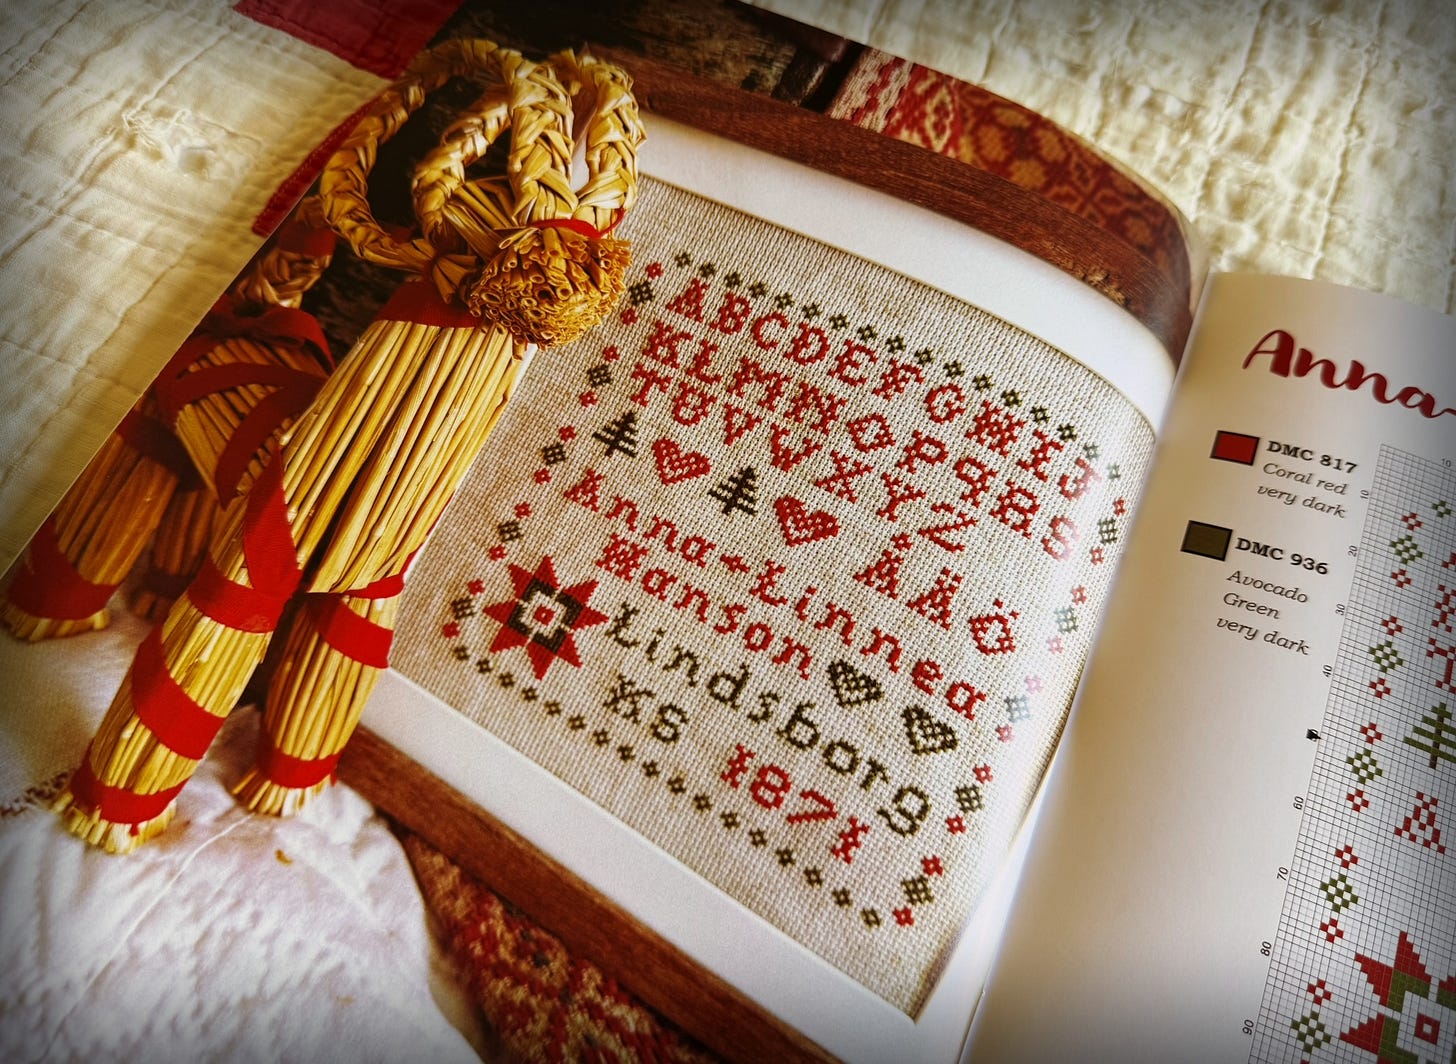 ABCDEFGHIJ
KLMNOPQRS
TUVWXYZ
ÅÄÖ
Anna+Linnea
Manson
Lindsborg
KS 1871
Anna
DMC 817
Coral red
very dark
DMC 936
Avocado
Green
very dark
10
10
20
30
40
60
70
80
90